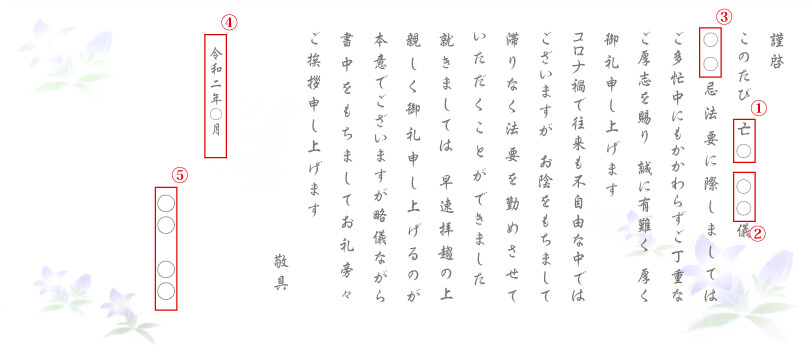 謹啓
このたび 亡〇 〇〇儀
〇〇忌法要に際しましては
ご多忙中にもかかわらずご丁重な
ご厚志を賜り 誠に有難く 厚く
御礼申し上げます
コロナ禍で往来も不自由な中では
ございますが お陰をもちまして
滞りなく法要を勤めさせて
いただくことができました
就きましては 早速拝趨の上
親しく御礼申し上げるのが
本意でございますが略儀ながら
書中をもちましてお礼旁々
ご挨拶申し上げます
敬具
令和二年〇月
〇〇 〇〇
①
②
③
④
⑤